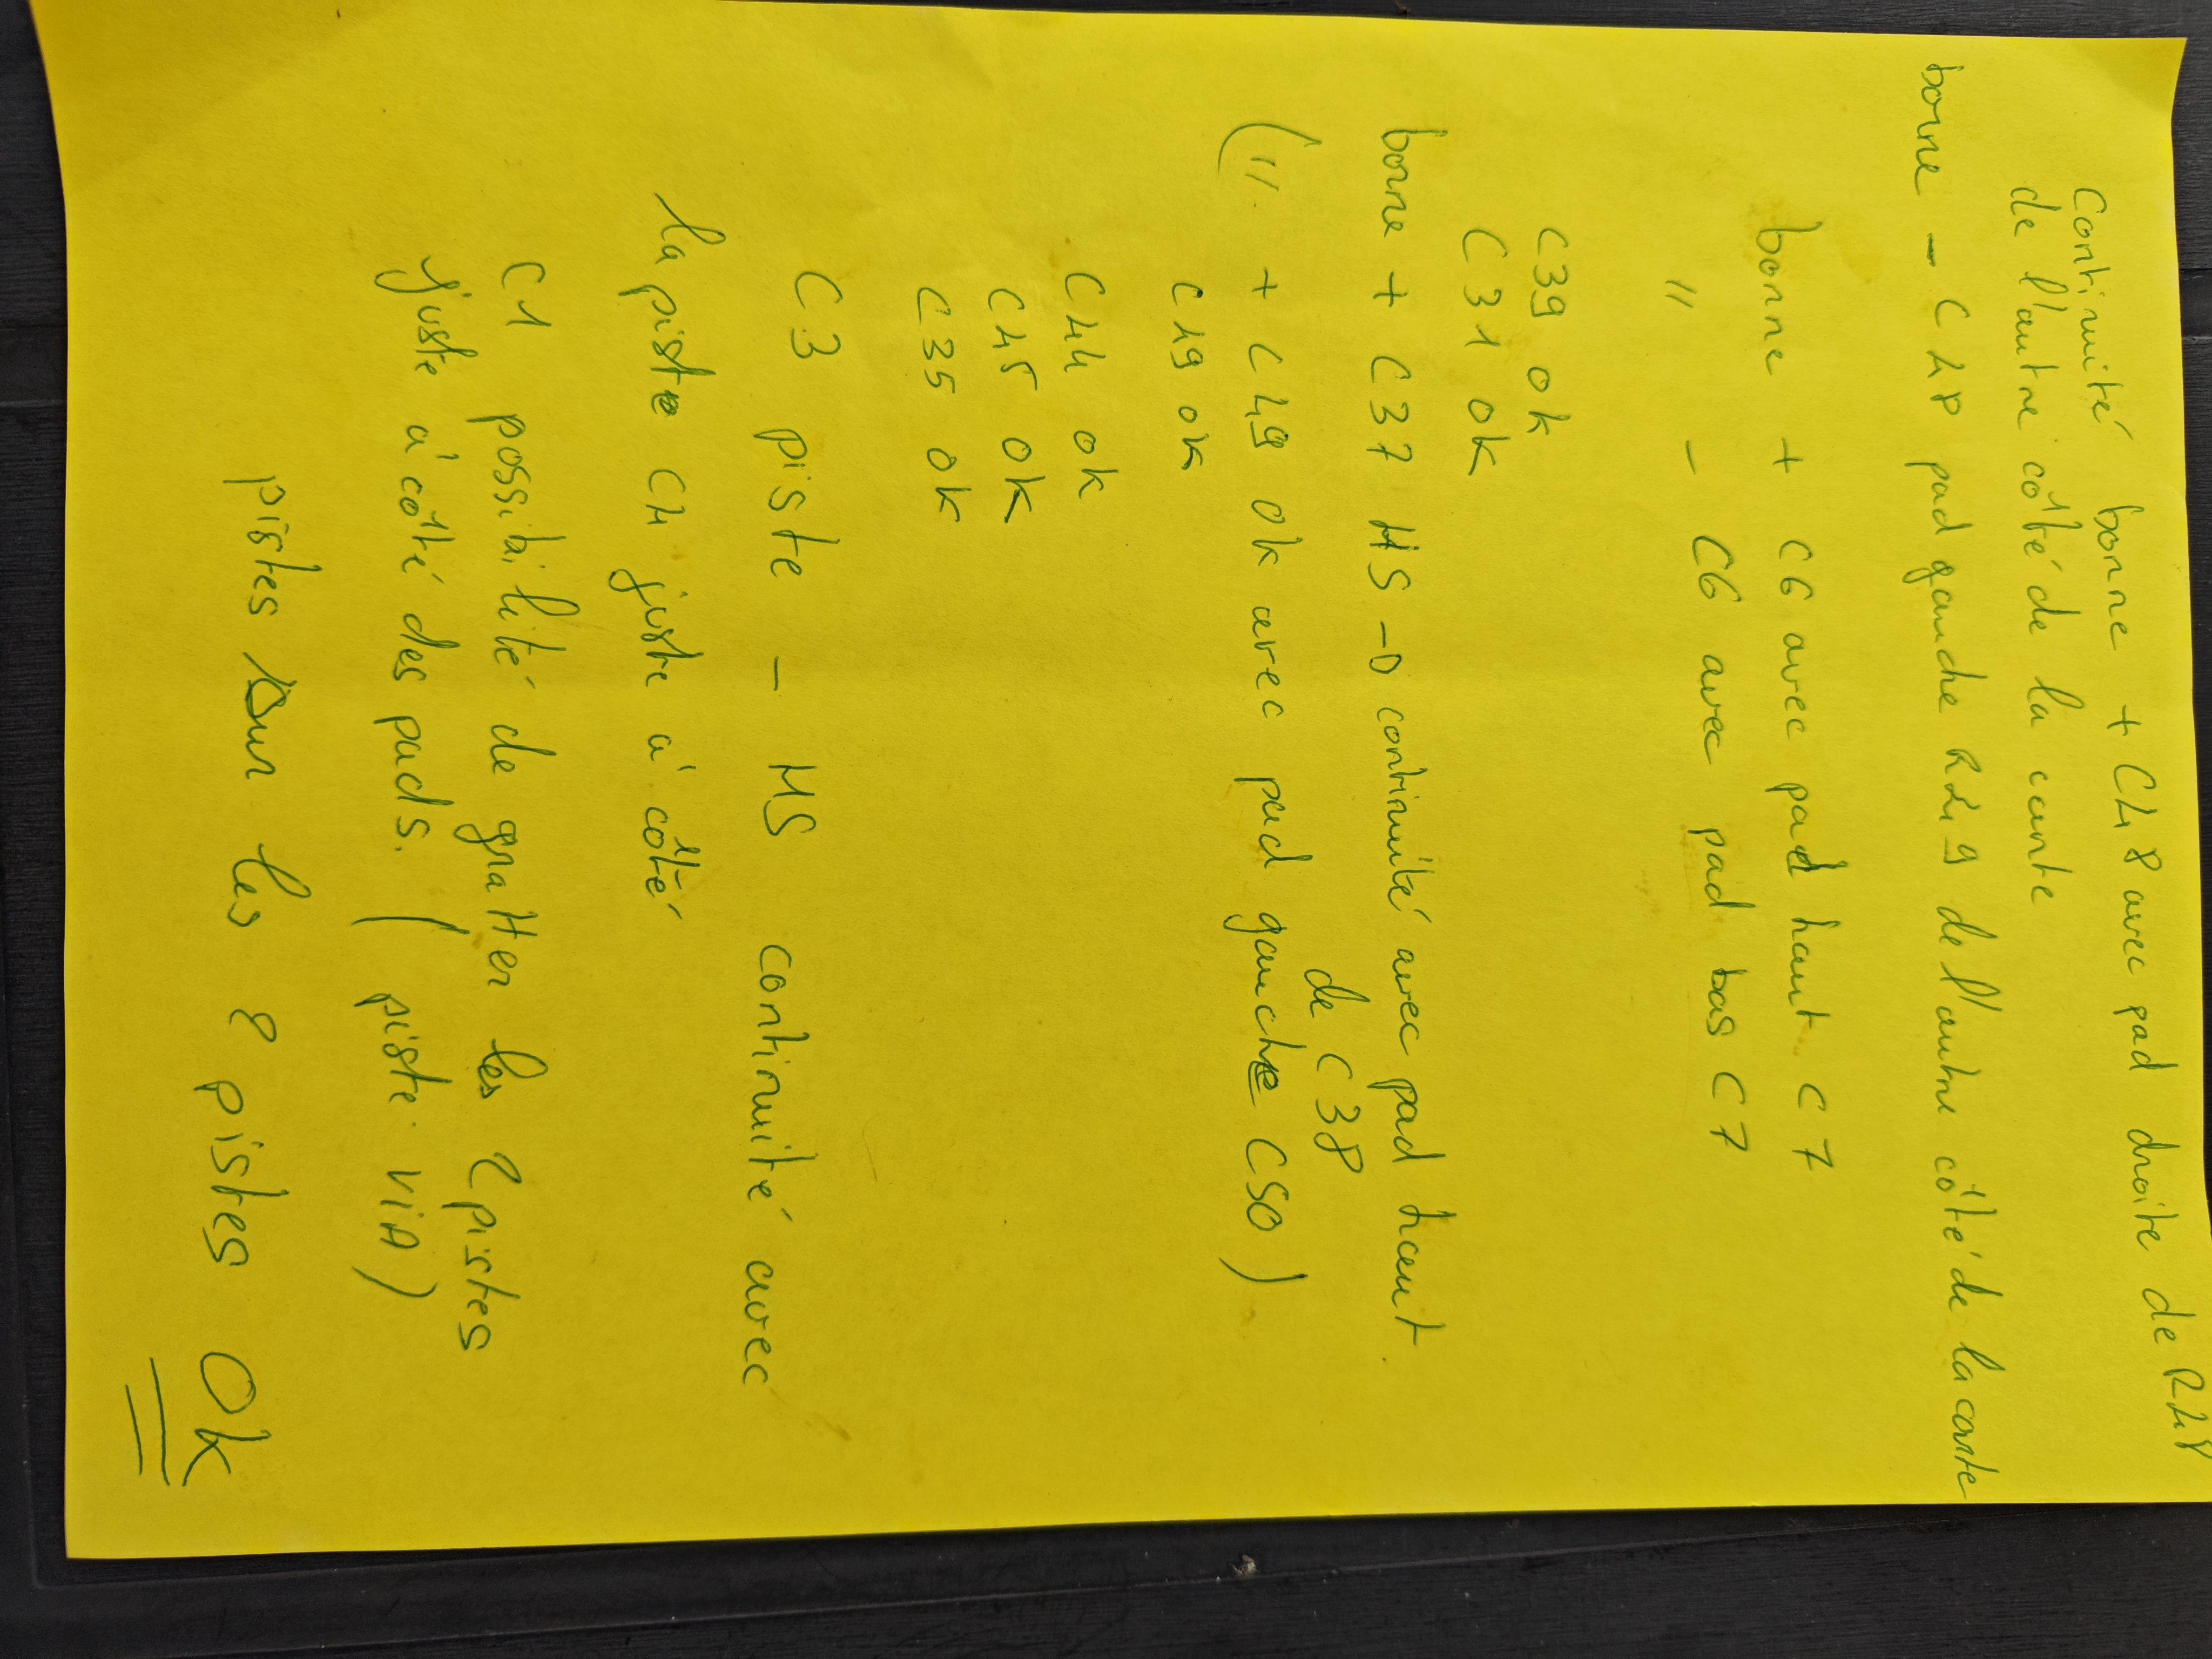 Continuité borne + C48 avec pad droite de R48
de l'autre côté de la carte
borne - C48 pad gauche R49 de l'autre côté de la carte
borne + C6 avec pad haut C7
" - C6 avec pad bas C7
C39 ok
C31 ok
borne + C37 HS → continuité avec pad haut
de C38
(" + C49 ok avec pad gauche C50)
C49 ok
C44 ok
C45 ok
C35 ok
C3 piste - HS continuité avec
la piste C4 juste à côté
C1 possibilité de gratter les 2 pistes
juste à côté des pads. (piste viA)
pistes sur les 2 pistes Ok